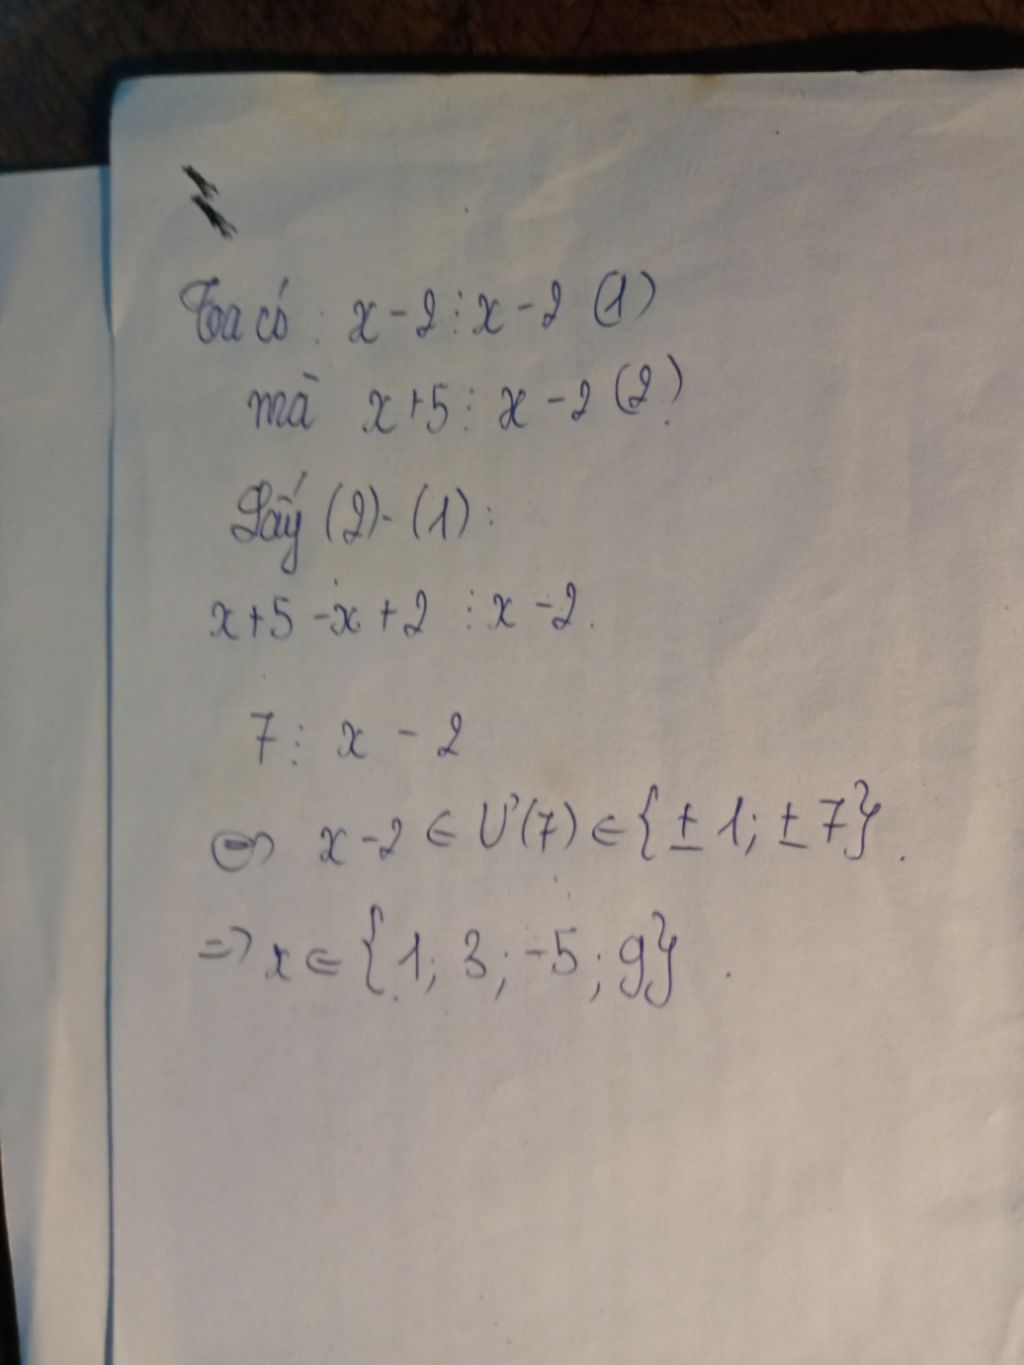 Ta có: x - 2 ⋮ x - 2 (1)
mà x + 5 ⋮ x - 2 (2).
Lấy (2) - (1):
x + 5 - x + 2 ⋮ x - 2.
7 ⋮ x - 2
⇔ x - 2 ∈ Ư(7) ∈ {± 1; ± 7}.
=> x ∈ {1; 3; -5; 9}.